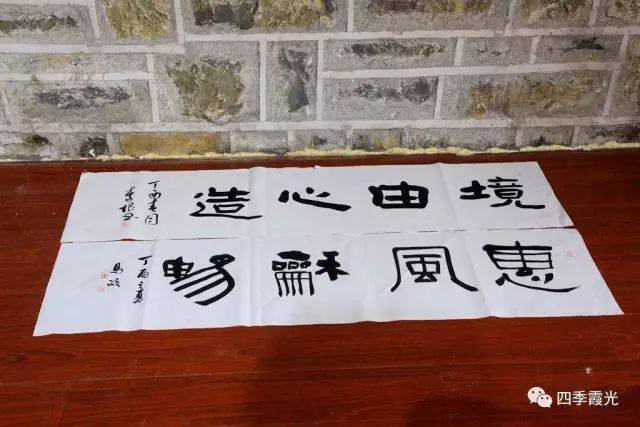 境由心造
丁酉
惠風龢暢
丁酉之夏
四季霞光